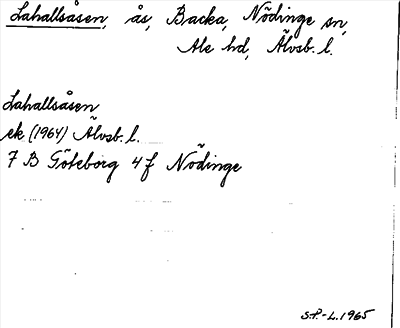 Lahallsåsen, ås, Backa, Nödinge sn,
Ale hd, Älvsb. l.
Lahallsåsen
ek (1964) Älvsb. l.
7 B Göteborg 4 f Nödinge
S.P.-L. 1965